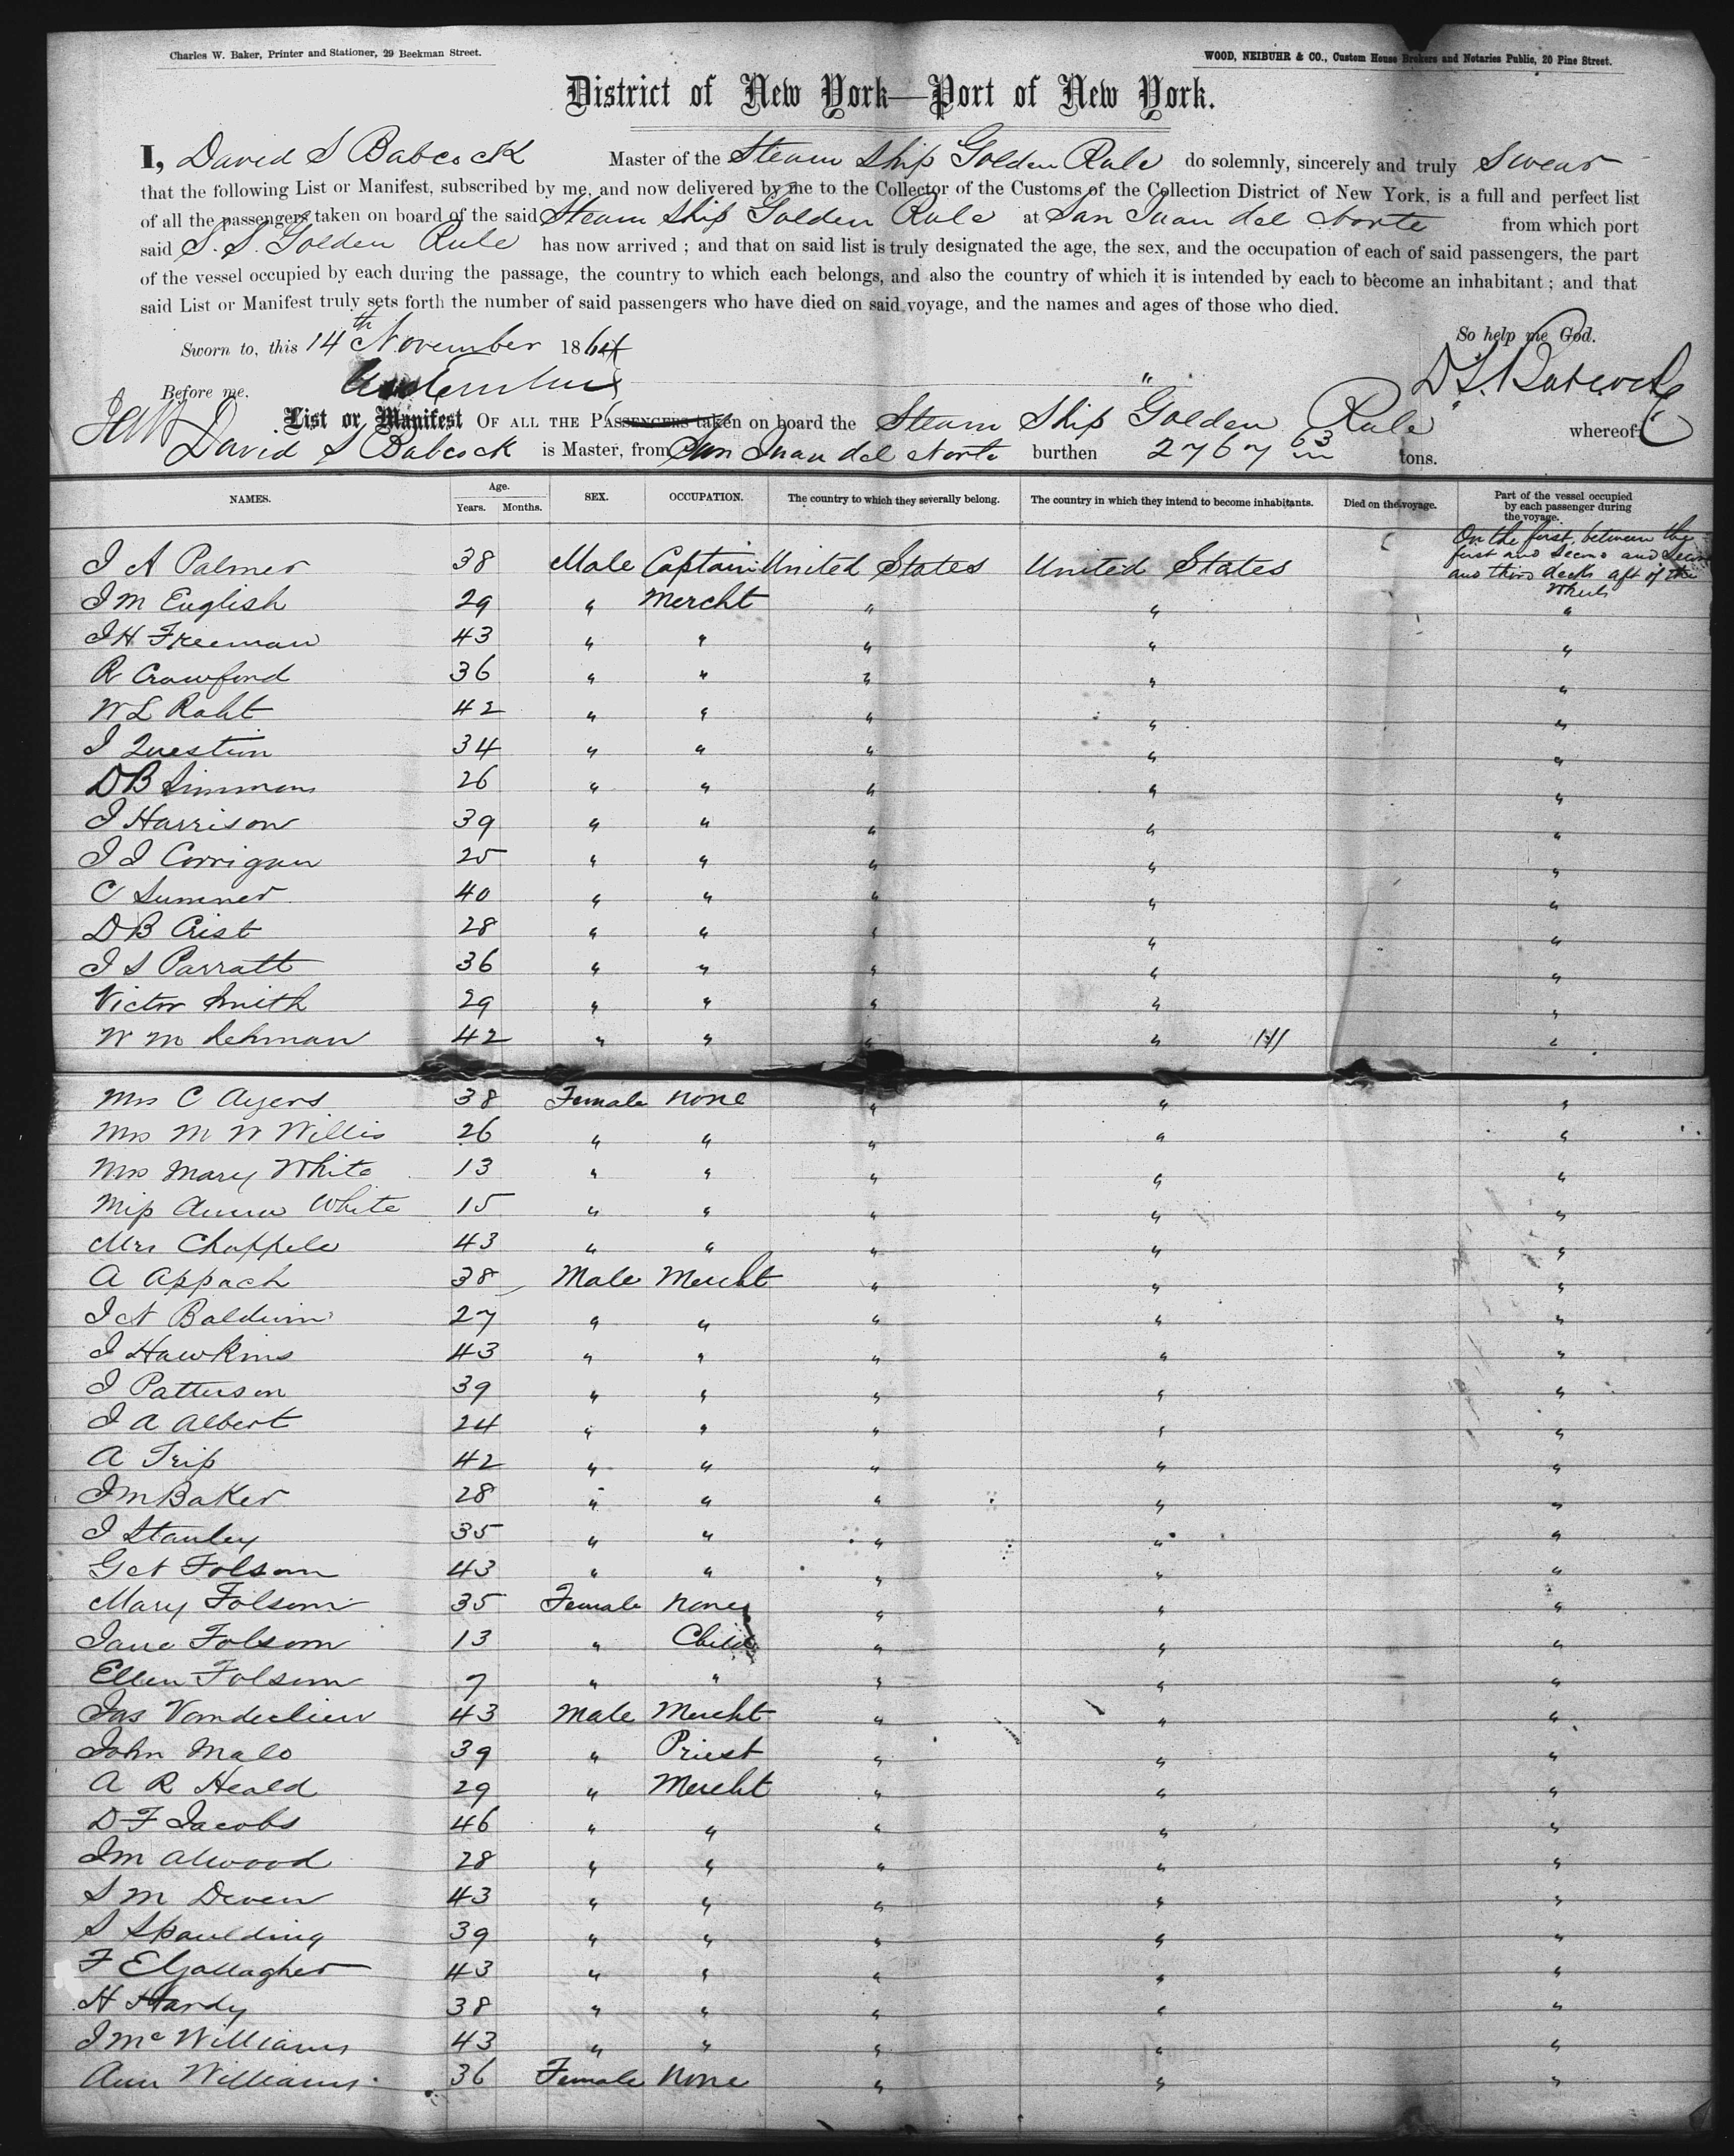 Charles W. Baker, Printer and Stationer, 29 Beekman Street.
WOOD, NEIBUHR & CO., Custom House Brokers and Notaries Public, 20 Pine Street.
District of New York—Port of New York.
I, David S Babcock Master of the Steam Ship Golden Rule do solemnly, sincerely and truly Swear
that the following List or Manifest, subscribed by me, and now delivered by me to the Collector of the Customs of the Collection District of New York, is a full and perfect list
of all the passengers taken on board of the said Steam Ship Golden Rule at San Juan del Norte from which port
said S. S. Golden Rule has now arrived ; and that on said list is truly designated the age, the sex, and the occupation of each of said passengers, the part
of the vessel occupied by each during the passage, the country to which each belongs, and also the country of which it is intended by each to become an inhabitant ; and that
said List or Manifest truly sets forth the number of said passengers who have died on said voyage, and the names and ages of those who died.
So help me God.
Sworn to, this 14th November 1864
D S. Babcock
Before me,
List or Manifest OF ALL THE PASSENGERS taken on board the Steam Ship Golden Rule whereof
David S Babcock is Master, from San Juan del Norte burthen 2767 63 tons.
NAMES. Age. Years. Months. SEX. OCCUPATION. The country to which they severally belong. The country in which they intend to become inhabitants. Died on the voyage. Part of the vessel occupied by each passenger during the voyage.
On the first, between the
first and second and second
and third decks aft of the
Wheels
J A Palmer 38 Male Captain United States United States
J M English 29 " Mercht " " "
J H Freeman 43 " " " " "
R Crawford 36 " " " " "
W L Raht 42 " " " " "
J Question 34 " " " " "
D B Simmons 26 " " " " "
J Harrison 39 " " " " "
J J Corrigan 25 " " " " "
C Sumner 40 " " " " "
D B Crist 28 " " " " "
J S Parratt 36 " " " " "
Victor Smith 29 " " " " "
W M Lehman 42 " " " " "
Mrs C Ayers 38 Female None " " "
Mrs M W Willis 26 " " " " "
Mrs Mary White 13 " " " " "
Miss Anna White 15 " " " " "
Mrs Chappele 43 " " " " "
A Appach 38 Male Mercht " " "
J A Baldwin 27 " " " " "
J Hawkins 43 " " " " "
J Patterson 39 " " " " "
J A Albert 24 " " " " "
A Trip 42 " " " " "
J M Baker 28 " " " " "
J Stanley 35 " " " " "
G A Folsom 43 " " " " "
Mary Folsom 35 Female None " " "
Jane Folsom 13 " Child " " "
Ellen Folsom 7 " " " " "
Jas Vanderlieu 43 Male Mercht " " "
John Malo 39 " Priest " " "
A R Heald 29 " Mercht " " "
D F Jacobs 46 " " " " "
J M Atwood 28 " " " " "
S M Deven 43 " " " " "
S Spaulding 39 " " " " "
F E Gallagher 43 " " " " "
H Hardy 38 " " " " "
J Mc Williams 43 " " " " "
Ann Williams 36 Female None " " "